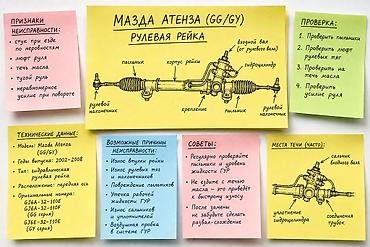 ПРИЗНАКИ
НЕИСПРАВНОСТИ:
• стук при езде
по неровностям
• люфт руля
• течь масла
• тугой руль
• неравномерное
усилие при повороте
МАЗДА АТЕНЗА (GG/GY)
РУЛЕВАЯ РЕЙКА
входной вал
(от рулевого вала)
пыльник
корпус рейки
гидроцилиндр
рулевой
наконечник
крепление
пыльник
рулевой
наконечник
ПРОВЕРКА:
1. Проверить пыльники
2. Проверить люфт
рулевых тяг
3. Проверить на
течь масла
4. Проверить
усилие руля
ТЕХНИЧЕСКИЕ ДАННЫЕ:
• Модель: Mazda Atenza
(GG/GY)
• Годы выпуска: 2002-2008
• Тип: гидравлическая
рулевая рейка
• Расположение: передняя ось
• Оригинальные номера:
(GG серия)
(GY серия)
ВОЗМОЖНЫЕ ПРИЧИНЫ
НЕИСПРАВНОСТИ:
• Износ втулки рейки
• Износ рулевых тяг
и наконечников
• Повреждение пыльников
• Утечка рабочей
жидкости ГУР
• Износ сальников
и уплотнителей
• Воздушная пробка
в системе ГУР
СОВЕТЫ:
• Регулярно проверяйте
пыльники и уровень
жидкости ГУР
• Не ездите с течью
масла — это приведёт
к быстрому износу
• После замены
не забудьте сделать
развал-схождение
МЕСТА ТЕЧИ (ЧАСТО):
сальник
входного вала
уплотнение
гидроцилиндра
соединения
трубок